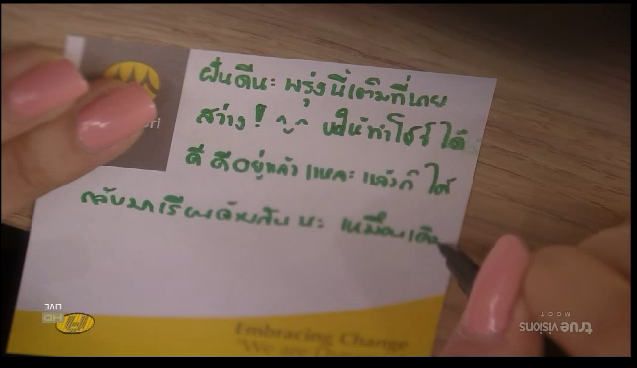 ฝันดีนะ พรุ่งนี้เติมที่นาย
สว่าง! ^_^ ขอให้ทำโชว์ได้
ดี ดีอยู่แล้วแหละ แล้วก็ ได้
กลับมาเรียนด้วยกันนะ เหมือนเดิม
Embracing Change
"We are
true visions
MCOT
HD
LIVE